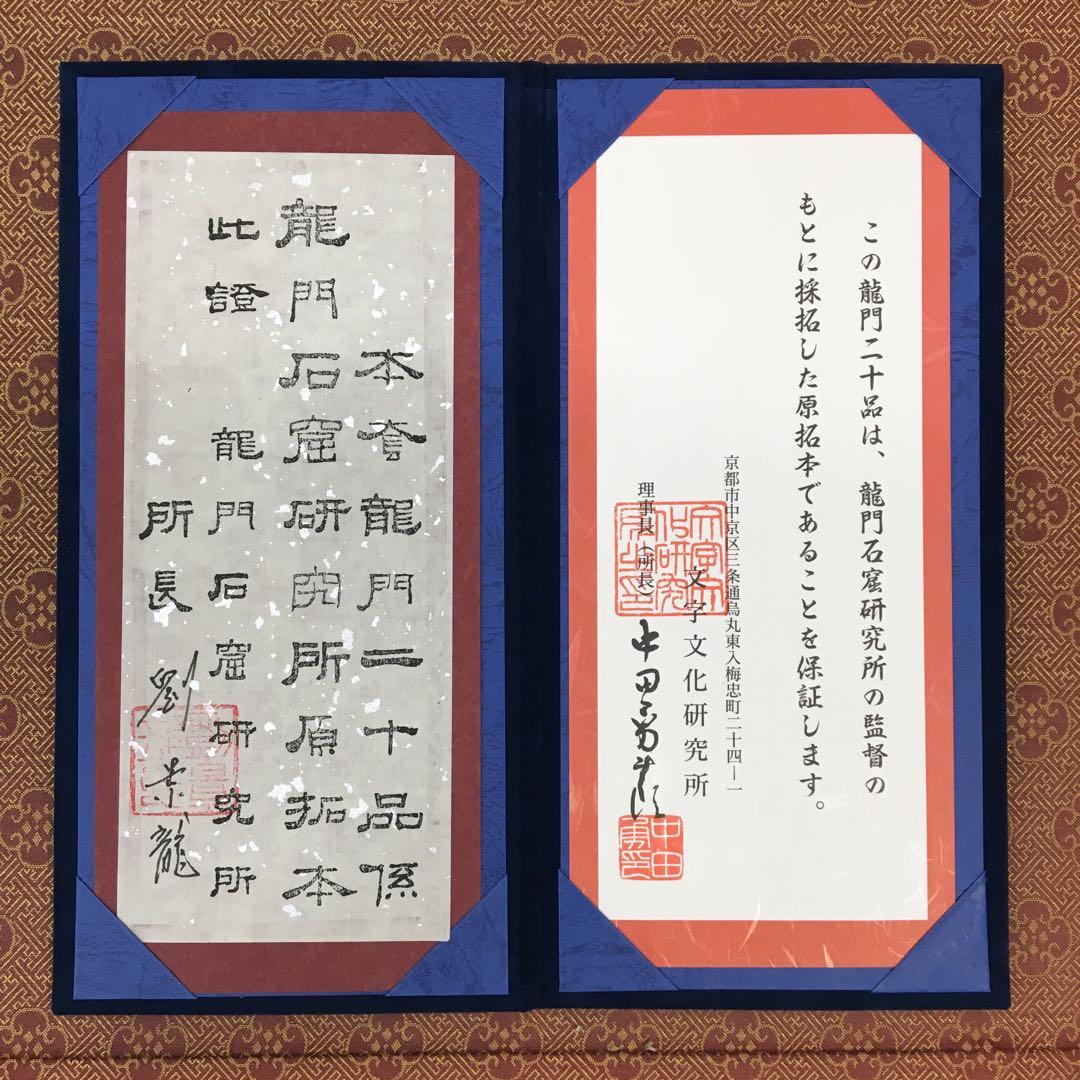 この龍門二十品は、龍門石窟研究所の監督の
もとに採拓した原拓本であることを保証します。
京都市中京区三条通烏丸東入梅忠町二十四―一
文字文化研究所
理事長(所長)
中田勇次郎
本套龍門二十品係
龍門石窟研究所原拓本
此證
龍門石窟研究所
所長 劉景龍